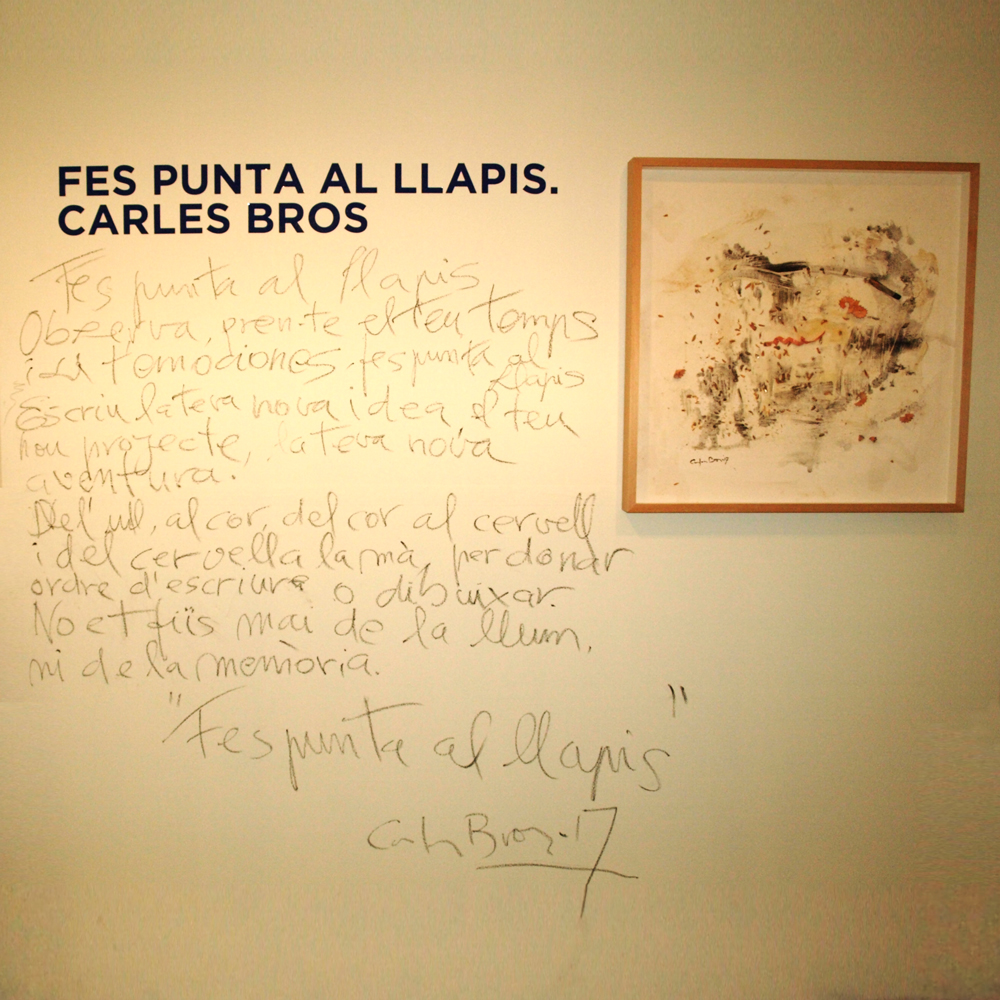 FES PUNTA AL LLAPIS.
CARLES BROS
Fes punta al llapis
Observa, pren-te el teu temps
i fes punta al
llapis
Escriu la teva nova idea el teu
nou projecte, la teva nova
aventura.
Del'ull, al cor, del cor al cervell
i del cervell a la mà, per donar
ordre d'escriure o dibuixar.
No et fiïs mai de la llum,
ni de la memòria.
"Fes punta al llapis"
Carles Bros-17
Carles Bros